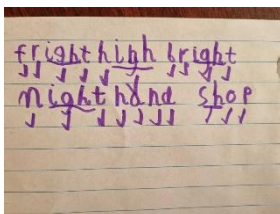 fright high bright
night hand shop